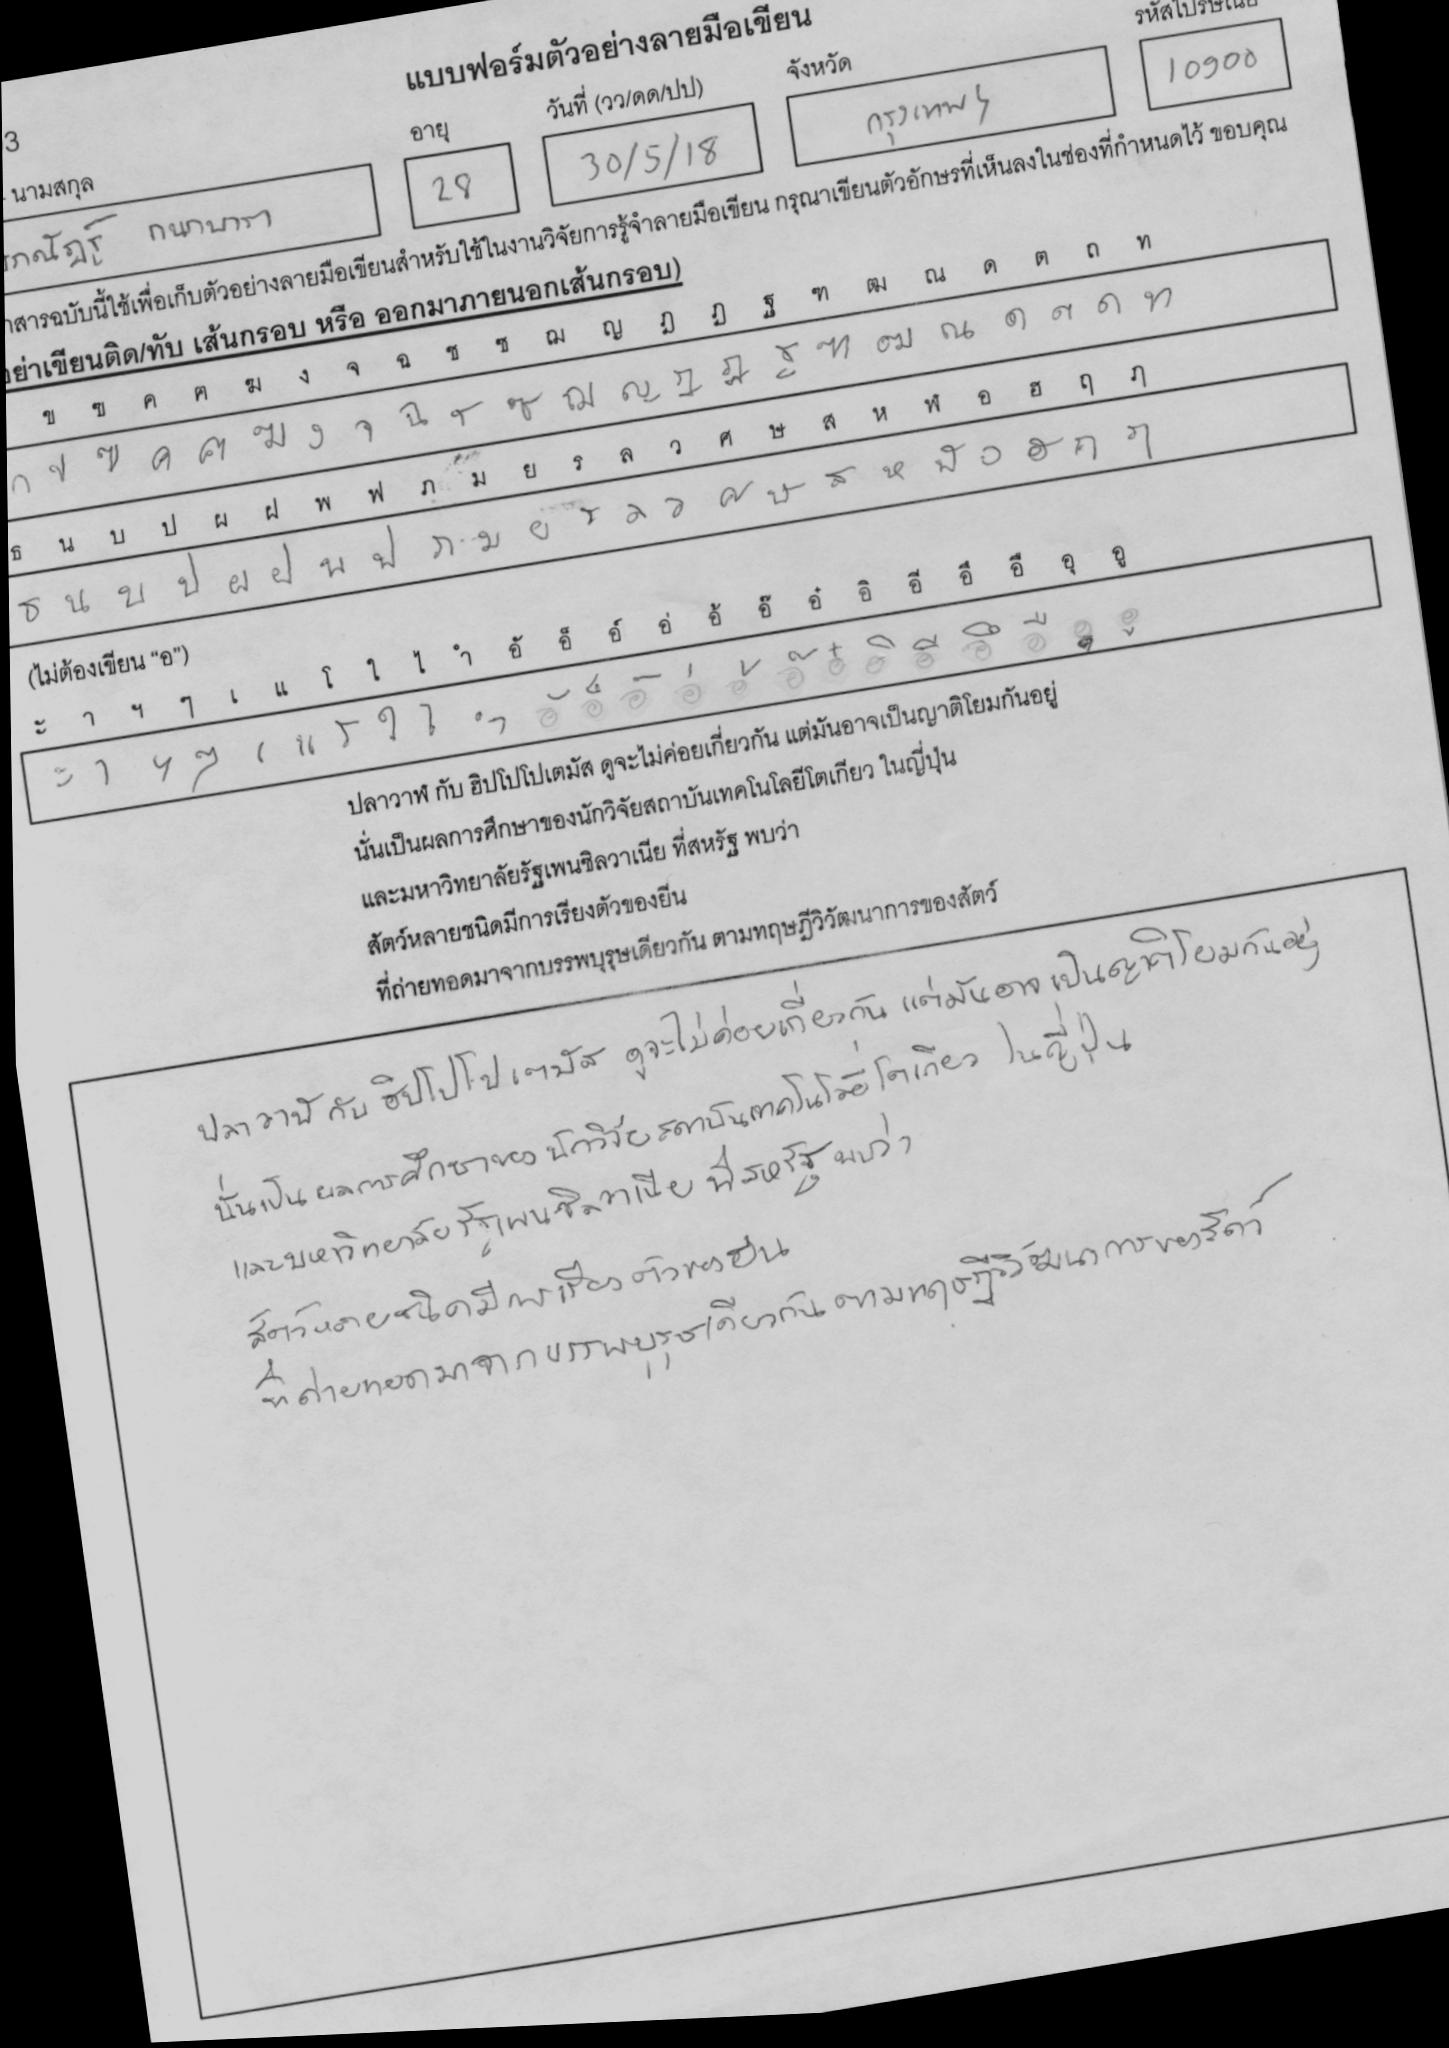 แบบฟอร์มตัวอย่างลายมือเขียน
3
นามสกุล อายุ วันที่ (วว/ดด/ปป) จังหวัด รหัสไปรษณีย์
28 30/5/18 กรุงเทพฯ 10900
สารฉบับนี้ใช้เพื่อเก็บตัวอย่างลายมือเขียนสำหรับใช้ในงานวิจัยการรู้จำลายมือเขียน กรุณาเขียนตัวอักษรที่เห็นลงในช่องที่กำหนดไว้ ขอบคุณ
อย่าเขียนติด/ทับ เส้นกรอบ หรือ ออกมาภายนอกเส้นกรอบ)
ข ฃ ค ฅ ฆ ง จ ฉ ช ซ ฌ ญ ฎ ฏ ฐ ฑ ฒ ณ ด ต ถ ท
ก ข ฃ ค ฅ ฆ ง จ ฉ ช ซ ฌ ญ ฎ ฏ ฐ ฑ ฒ ณ ด ต ถ ท
ธ น บ ป ผ ฝ พ ฟ ภ ม ย ร ล ว ศ ษ ส ห ฬ อ ฮ ฤ ฦ
ธ น บ ป ผ ฝ พ ฟ ภ ม ย ร ล ว ศ ษ ส ห ฬ อ ฮ ฤ ฦ
(ไม่ต้องเขียน “อ”)
ะ า ฯ ๆ เ แ โ ใ ไ ำ อั อ็ อ์ อ่ อ้ อ๊ อ๋ อิ อี อึ อื อุ อู
ะ า ฯ ๆ เ แ โ ใ ไ ำ อั อ็ อ์ อ่ อ้ อ๊ อ๋ อิ อี อึ อื อุ อู
ปลาวาฬ กับ ฮิปโปโปเตมัส ดูจะไม่ค่อยเกี่ยวกัน แต่มันอาจเป็นญาติโยมกันอยู่
นั่นเป็นผลการศึกษาของนักวิจัยสถาบันเทคโนโลยีโตเกียว ในญี่ปุ่น
และมหาวิทยาลัยรัฐเพนซิลวาเนีย ที่สหรัฐ พบว่า
สัตว์หลายชนิดมีการเรียงตัวของยีน
ที่ถ่ายทอดมาจากบรรพบุรุษเดียวกัน ตามทฤษฎีวิวัฒนาการของสัตว์
ปลาวาฬ กับ ฮิปโปโปเตมัส ดูจะไม่ค่อยเกี่ยวกัน แต่มันอาจเป็นญาติโยมกันอยู่
นั่นเป็นผลการศึกษาของนักวิจัยสถาบันเทคโนโลยีโตเกียว ในญี่ปุ่น
และมหาวิทยาลัยรัฐเพนซิลวาเนีย ที่สหรัฐ พบว่า
สัตว์หลายชนิดมีการเรียงตัวของยีน
ที่ถ่ายทอดมาจากบรรพบุรุษเดียวกัน ตามทฤษฎีวิวัฒนาการของสัตว์